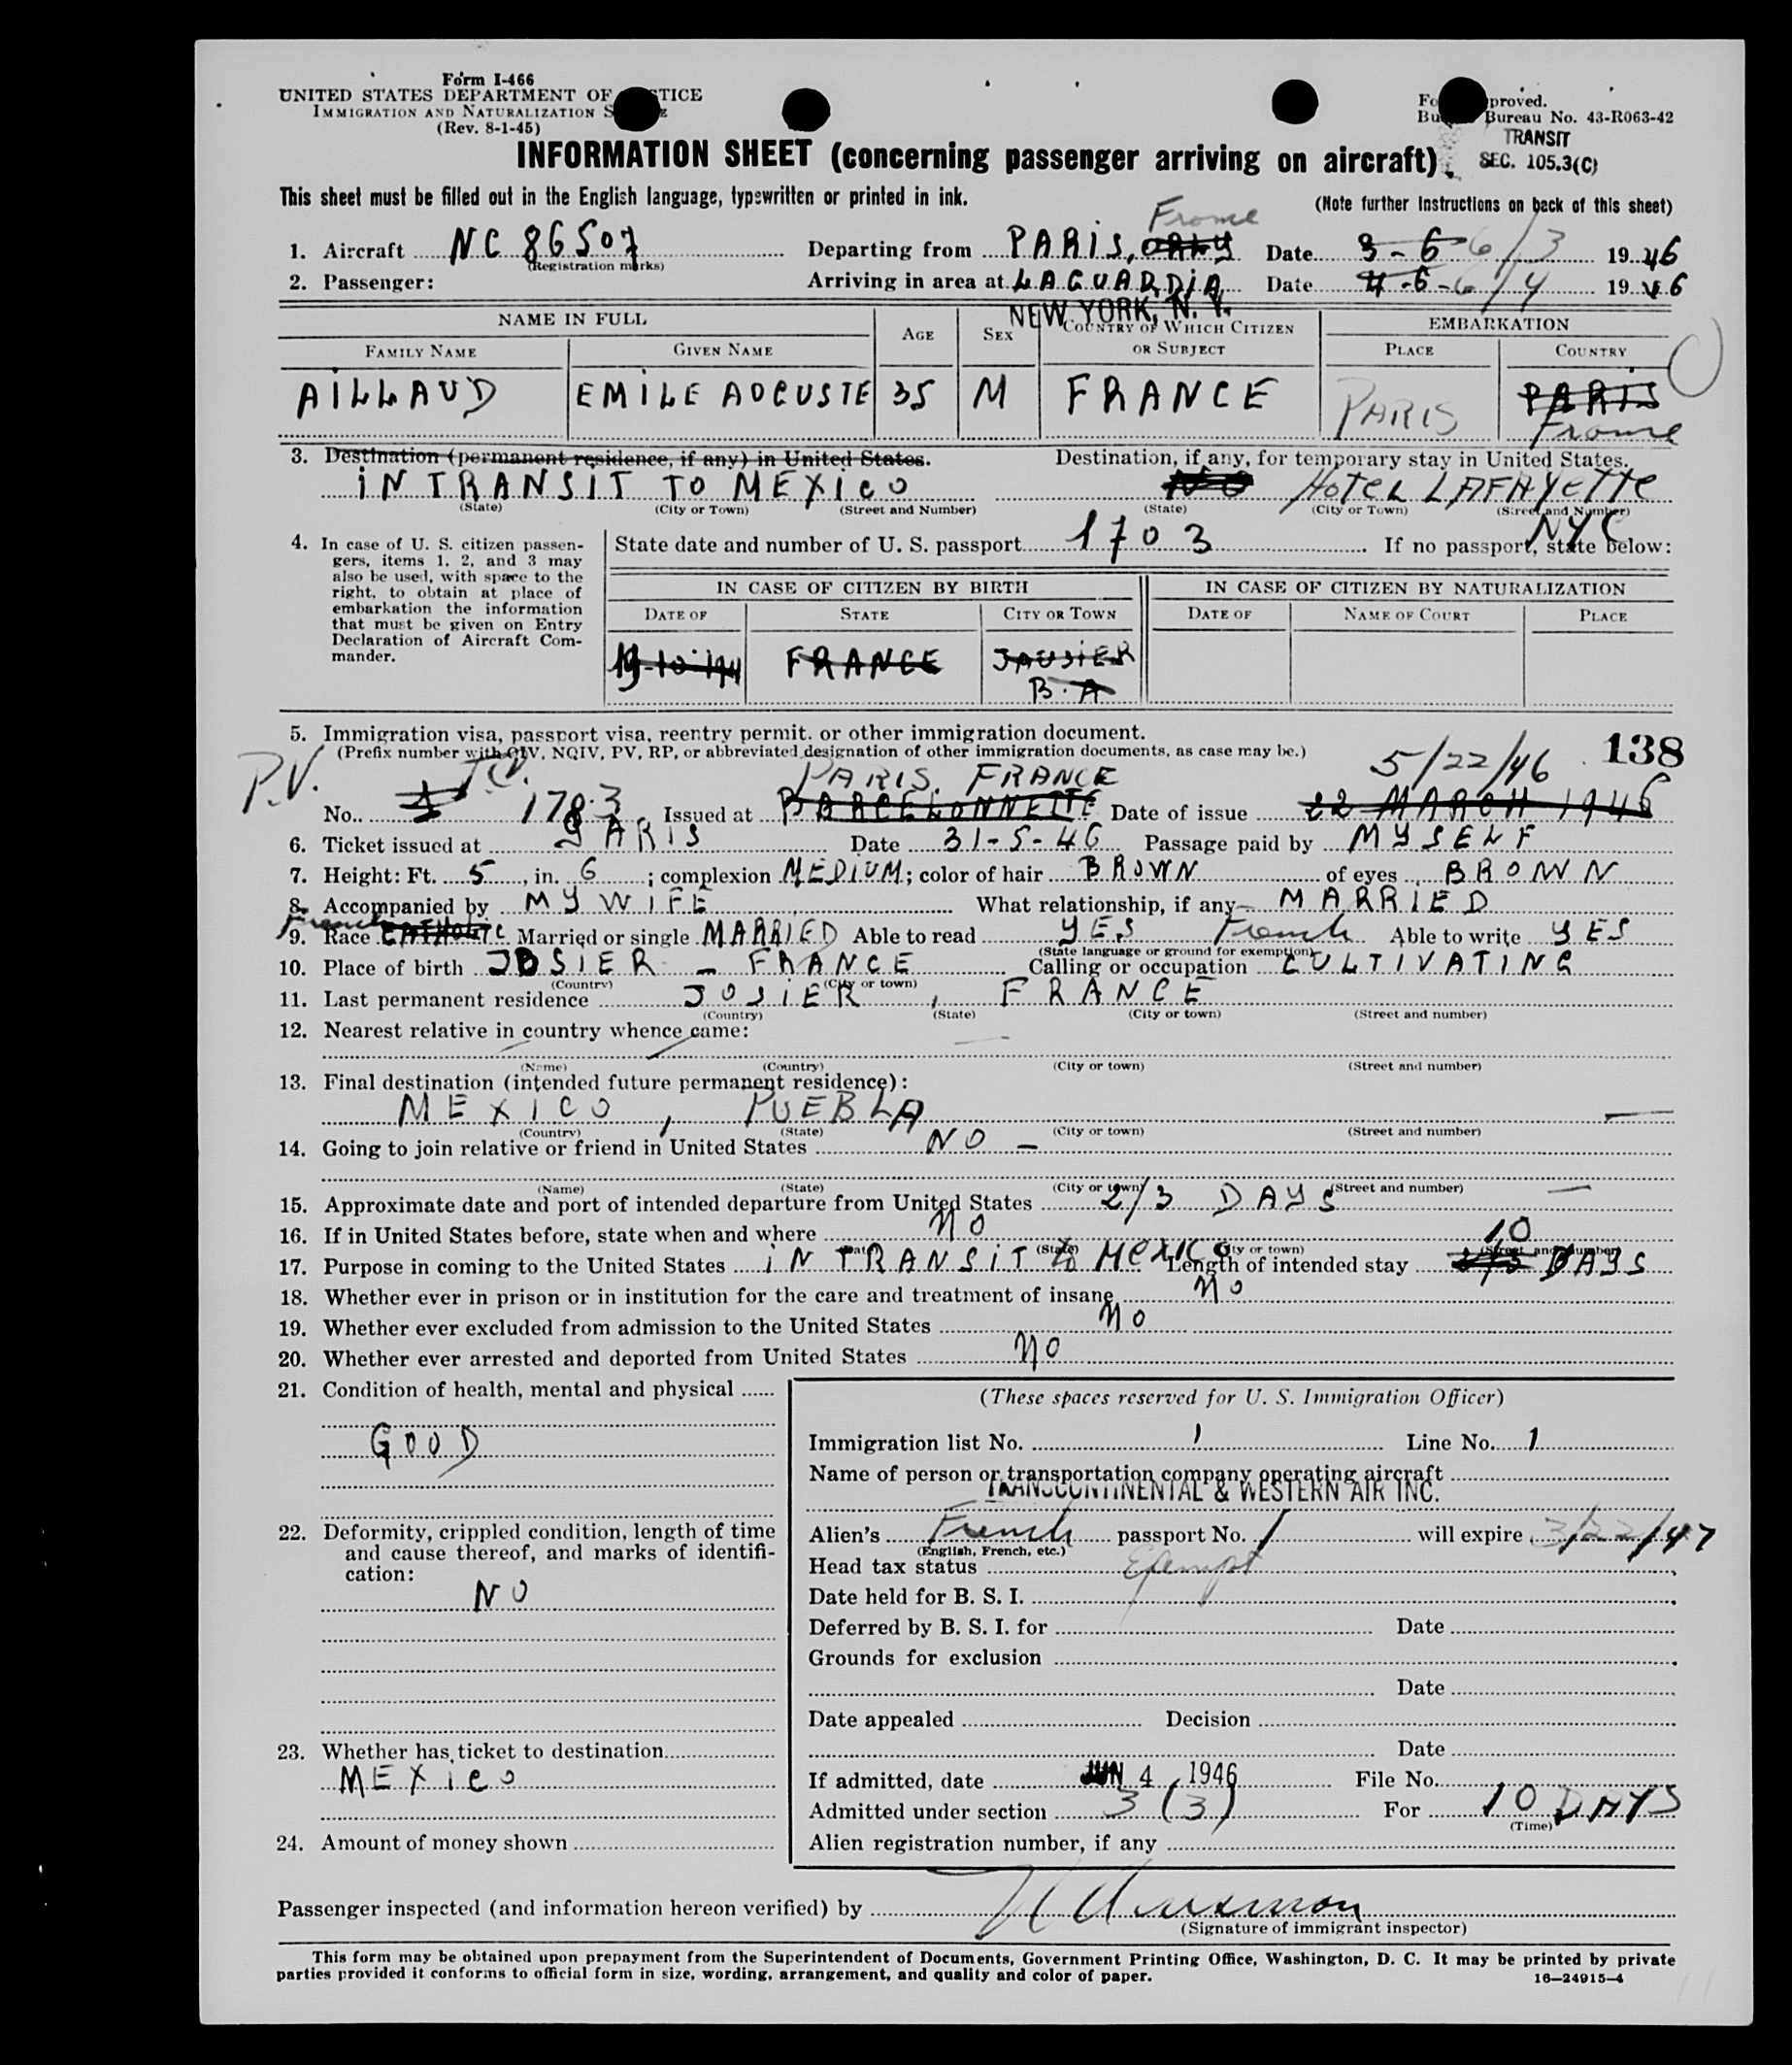 Form I-466
UNITED STATES DEPARTMENT OF TICE
IMMIGRATION AND NATURALIZATION
(Rev. 8-1-45)
proved.
Bureau No. 43-R063-42
TRANSIT
SEC. 105.3(C)
INFORMATION SHEET (concerning passenger arriving on aircraft)
This sheet must be filled out in the English language, typewritten or printed in ink.
(Note further instructions on back of this sheet)
1. Aircraft NC 86507 Departing from PARIS, ORLY France Date 3-6 6/3 1946
(Registration marks)
2. Passenger: Arriving in area at LAGUARDIA Date 4-6- 6/4 1946
NEW YORK, N. Y.
NAME IN FULL AGE SEX COUNTRY OF WHICH CITIZEN OR SUBJECT EMBARKATION
FAMILY NAME GIVEN NAME PLACE COUNTRY
AILLAUD EMILE AUGUSTE 35 M FRANCE PARIS PARIS
France
3. Destination (permanent residence, if any) in United States. Destination, if any, for temporary stay in United States.
IN TRANSIT TO MEXICO NO HOTEL LAFAYETTE
(State) (City or Town) (Street and Number) (State) (City or Town) (Street and Number)
NYC
4. In case of U. S. citizen passengers, items 1, 2, and 3 may also be used, with space to the right, to obtain at place of embarkation the information that must be given on Entry Declaration of Aircraft Commander.
State date and number of U. S. passport 1703 If no passport, state below:
IN CASE OF CITIZEN BY BIRTH IN CASE OF CITIZEN BY NATURALIZATION
DATE OF STATE CITY OR TOWN DATE OF NAME OF COURT PLACE
FRANCE JAUSIER
B.A
5. Immigration visa, passport visa, reentry permit, or other immigration document.
(Prefix number with QIV, NQIV, PV, RP, or abbreviated designation of other immigration documents, as case may be.)
138
P.V. PARIS, FRANCE 5/22/46
No. 1783 Issued at BARCELONNETTE Date of issue 22 MARCH 1946
6. Ticket issued at PARIS Date 31-5-46 Passage paid by MYSELF
7. Height: Ft. 5, in. 6; complexion MEDIUM; color of hair BROWN of eyes BROWN
8. Accompanied by MY WIFE What relationship, if any MARRIED
French
9. Race CATHOLIC Married or single MARRIED Able to read YES French Able to write YES
(State language or ground for exemption)
10. Place of birth JOSIER - FRANCE Calling or occupation CULTIVATING
(Country) (City or town)
11. Last permanent residence JOSIER, FRANCE
(Country) (State) (City or town) (Street and number)
12. Nearest relative in country whence came:
(Name) (Country) (City or town) (Street and number)
13. Final destination (intended future permanent residence):
MEXICO, PUEBLA
(Country) (State) (City or town) (Street and number)
14. Going to join relative or friend in United States NO -
(Name) (State) (City or town) (Street and number)
15. Approximate date and port of intended departure from United States 2/3 DAYS
16. If in United States before, state when and where NO
(State) (City or town) (Street and number)
10
17. Purpose in coming to the United States IN TRANSIT to MEXICO Length of intended stay 2/3 DAYS
18. Whether ever in prison or in institution for the care and treatment of insane NO
19. Whether ever excluded from admission to the United States NO
20. Whether ever arrested and deported from United States NO
21. Condition of health, mental and physical
GOOD
22. Deformity, crippled condition, length of time and cause thereof, and marks of identification:
NO
23. Whether has ticket to destination
MEXICO
24. Amount of money shown
(These spaces reserved for U. S. Immigration Officer)
Immigration list No. 1 Line No. 1
Name of person or transportation company operating aircraft
TRANSCONTINENTAL & WESTERN AIR INC.
Alien's French passport No. will expire 3/22/47
(English, French, etc.)
Head tax status Exempt
Date held for B. S. I.
Deferred by B. S. I. for Date
Grounds for exclusion
Date
Date appealed Decision
Date
If admitted, date JUN 4 1946 File No.
Admitted under section 3 (3) For 10 DAYS
(Time)
Alien registration number, if any
Passenger inspected (and information hereon verified) by
(Signature of immigrant inspector)
This form may be obtained upon prepayment from the Superintendent of Documents, Government Printing Office, Washington, D. C. It may be printed by private
parties provided it conforms to official form in size, wording, arrangement, and quality and color of paper.
16—24915-4